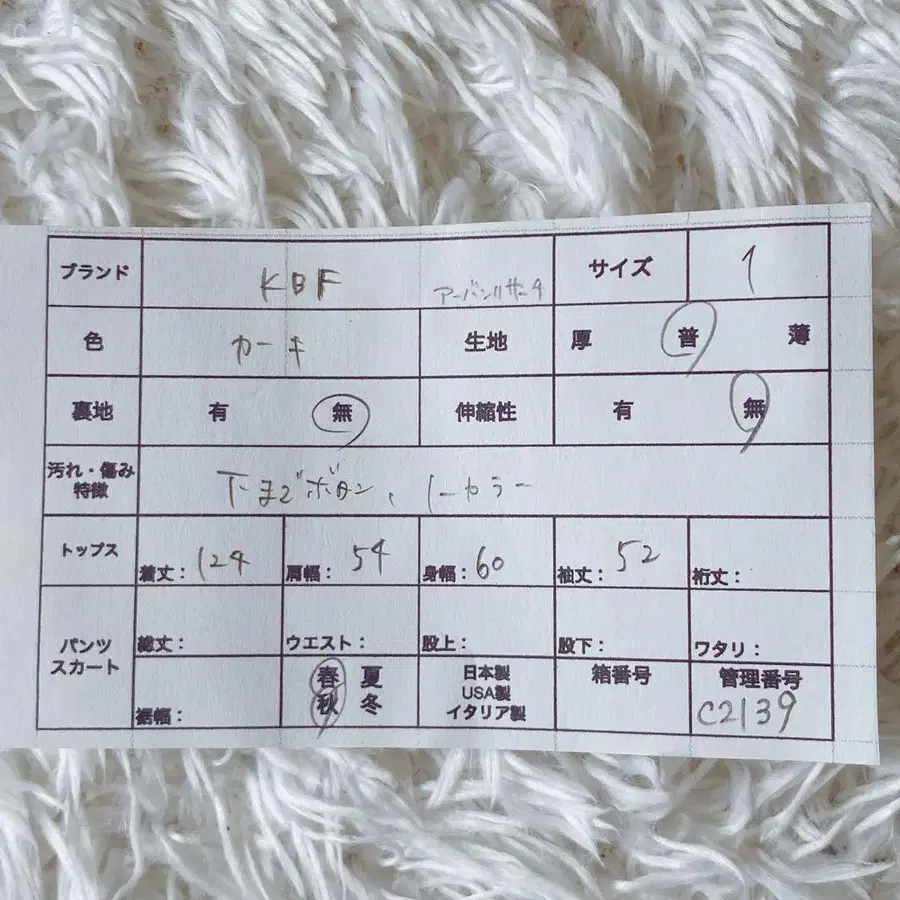 ブランド KBF アーバンリサーチ サイズ 1
色 カーキ 生地 厚 普 薄
裏地 有 無 伸縮性 有 無
汚れ・傷み
特徴 下までボタン、ノーカラー
トップス 着丈: 124 肩幅: 54 身幅: 60 袖丈: 52 裄丈:
パンツ
スカート 総丈: ウエスト: 股上: 股下: ワタリ:
裾幅: 春 夏
秋 冬
日本製
USA製
イタリア製
箱番号
管理番号
C2139